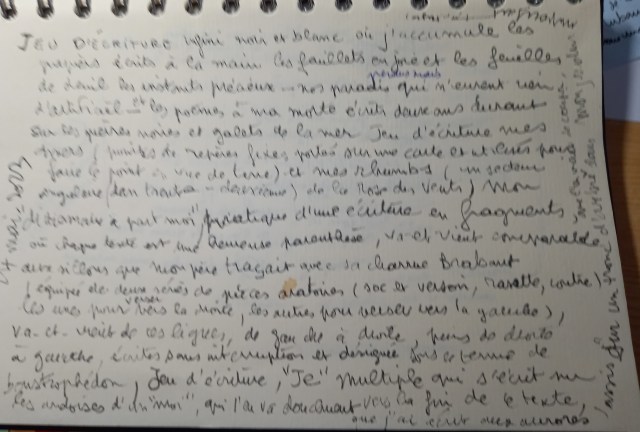 JEU D'ÉCRITURE infini noir et blanc où j'accumule les
papiers écrits à la main les feuillets en gré et les feuilles
de deuil les instants précieux — nos paradis perdus mais qui n'eurent rien
d'artificiel — et les poèmes à ma morte écrits deux ans durant
sur les pierres noires et galets de la mer Jeu d'écriture mes
amers (points de repères fixes portés sur une carte et utilisés pour
faire le point en vue de terre) et mes rhumbs (un secteur
angulaire de la Rose des Vents) mon
à part moi pratique d'une écriture en fragments,
où chaque texte est une heureuse parenthèse, va-et-vient comparable
aux sillons que mon père traçait avec sa charrue Brabant
(équipée de deux séries de pièces aratoires (soc et versoir, rasette, coutre)
les unes pour verser vers la droite, les autres pour verser vers la gauche),
va-et-vient de ces lignes, de gauche à droite, puis de droite
à gauche, écrites sans interruption et désignée sous ce terme de
boustrophédon, Jeu d'écriture, "Je" multiple qui s'écrit sur
les ardoises d'un "moi", qui va doucement vers la fin de ce texte,
que j'ai écrit aux aurores
assis sur un tronc d'arbre
mai 2023